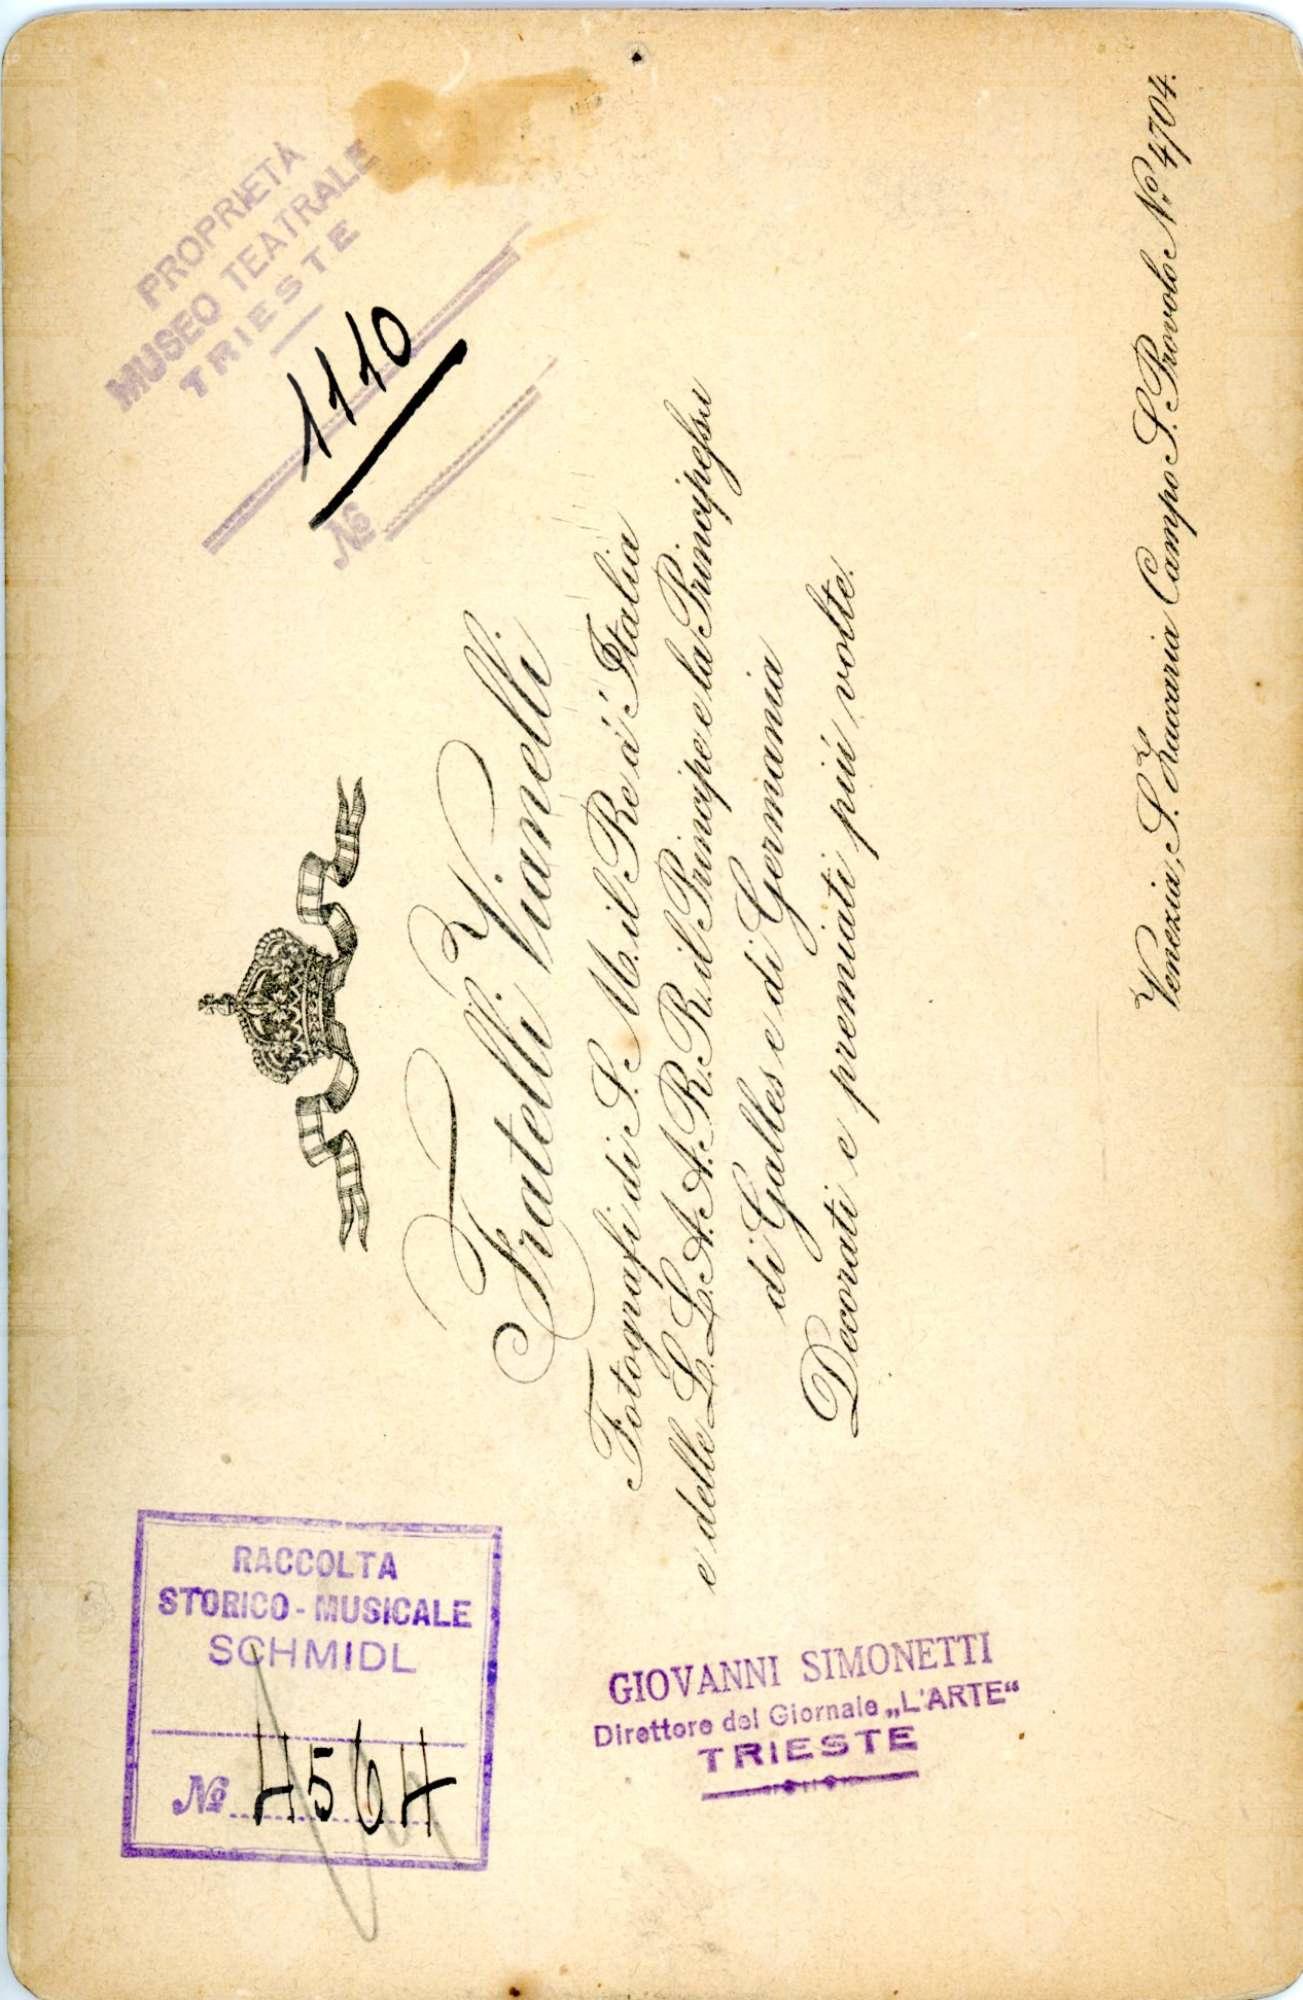 PROPRIETÀ
MUSEO TEATRALE
TRIESTE
1110
№
Fratelli Vianelli
Fotografi di S. M. il Re d'Italia
e delle L. L. A. A. R. R. il Principe e la Principessa
di Galles e di Germania
Decorati e premiati piú volte.
Venezia, S. Zaccaria Campo S. Provolo No. 4704.
RACCOLTA
STORICO - MUSICALE
SCHMIDL
№ 4564
GIOVANNI SIMONETTI
Direttore del Giornale „L'ARTE“
TRIESTE